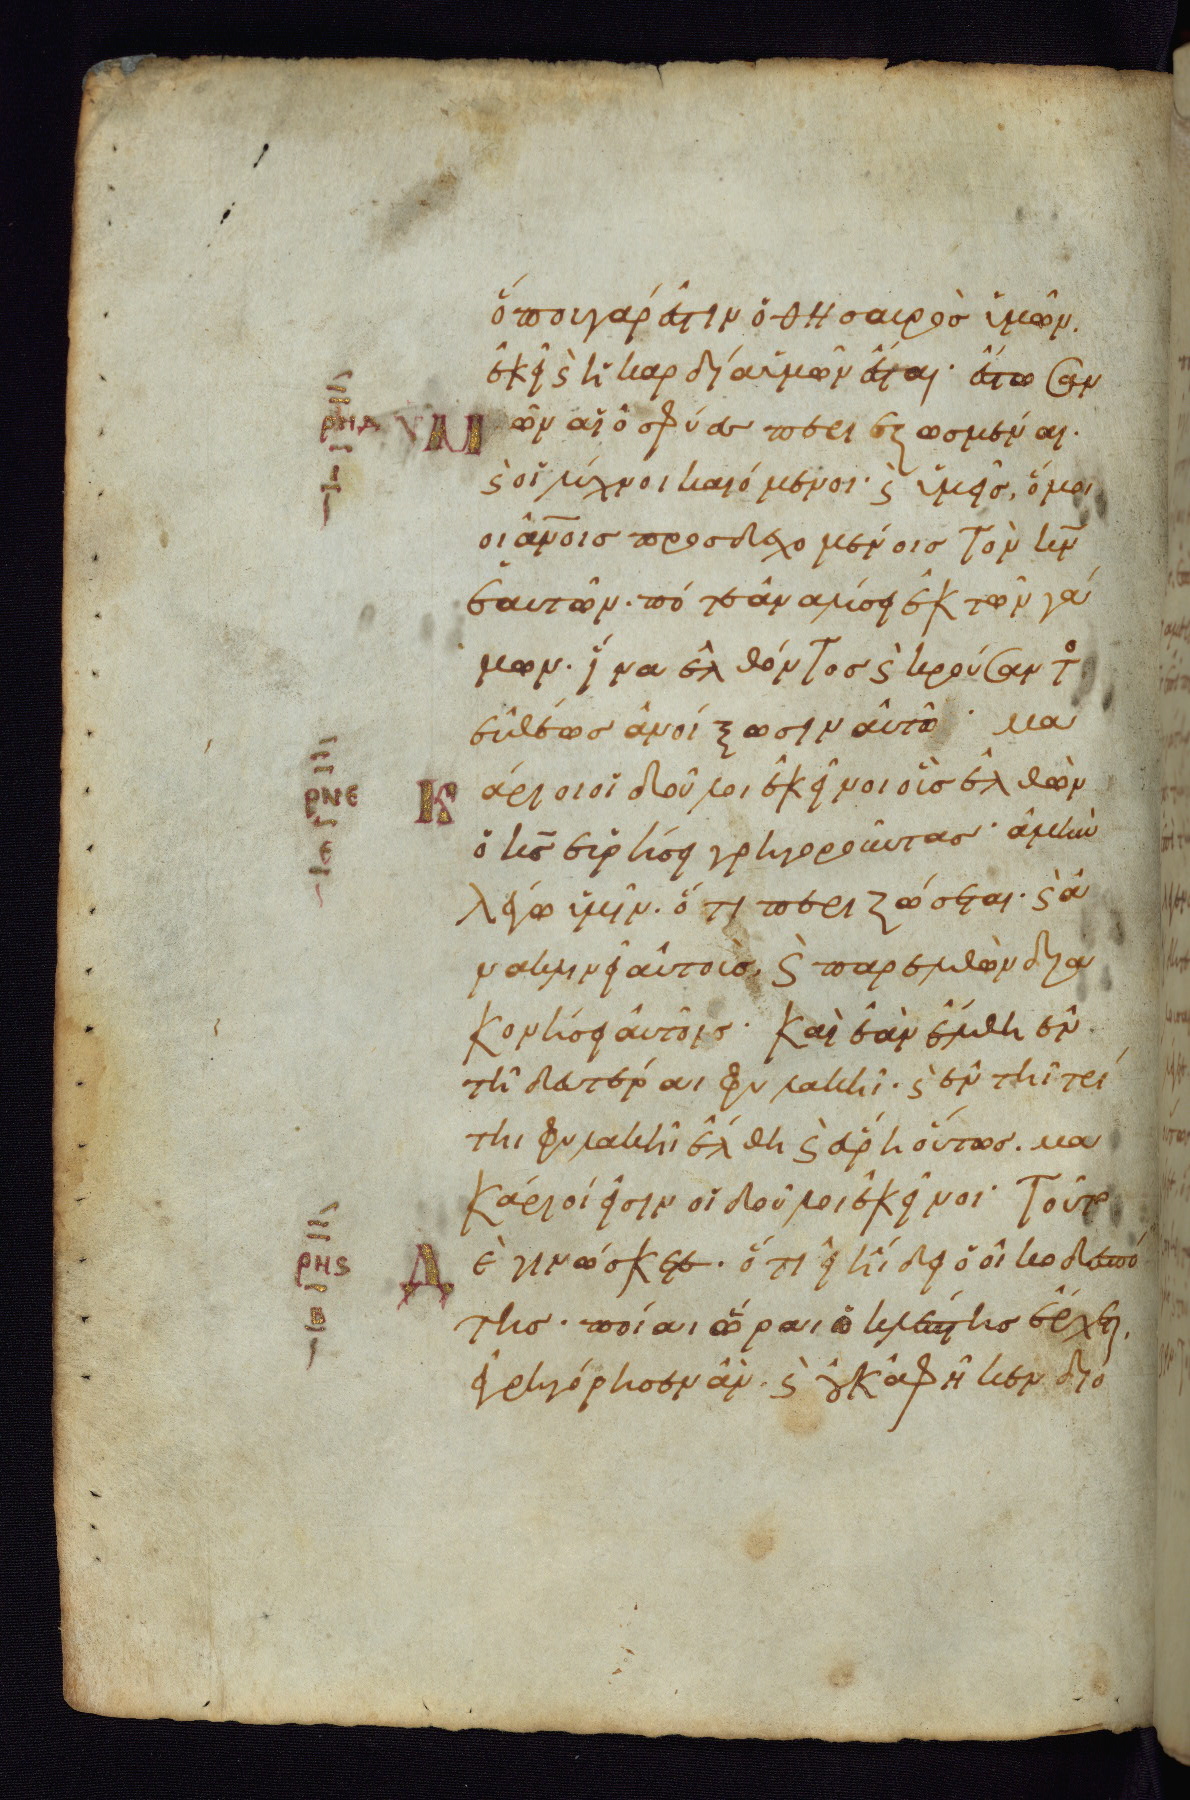 ὅπου γάρ ἐστιν ὁ θησαυρὸς ὑμῶν.
ἐκεῖ ϛ ἡ καρδία ὑμῶν ἔσται· ἔστωσαν
ΡΝΔ
Ι
ὑΜῶν αἱ ὀσφύες περιεζωσμέναι.
ϛ οἱ λύχνοι καιόμενοι· ϛ ὑμεῖς, ὅμοι
οι ἀνοις προσδεχομένοις τὸν κν
ἑαυτῶν. πότε ἀναλύσει ἐκ τῶν γά
μων. ἵνα ἐλθόντος ϛ κρούσαντο
εὐθέως ἀνοίξωσιν αὐτῶ· μα
ΡΝΕ
Ε
Κάριοι οἱ δοῦλοι ἐκεῖνοι οὓς ἐλθὼν
ὁ κς εὑρήσει γρηγοροῦντας· ἀμὴν
λέγω ὑμῖν. ὅτι περιζώσεται. ϛ ἀ
νακλινεῖ αὐτοὺς, ϛ παρελθὼν δια
κονήσει αὐτοῖς· καὶ ἐὰν ἔλθη ἐν
τῆ δευτέραι φυλακῆι. ϛ ἐν τῆι τρί
τηι φυλακῆι ἔλθη ϛ εὕρη οὕτως. μα
κάριοί εἰσιν οἱ δοῦλοι ἐκεῖνοι· τοῦτο
ΡΝϚ
Β
Δὲ γινώσκετε. ὅτι εἰ ἤδει ὁ οἰκοδεσπό
της. ποίαι ὥραι ὁ κλέπτης ἔρχεται,
ἐγρηγόρησεν ἄν. ϛ οὐκ ἀφῆκεν διο